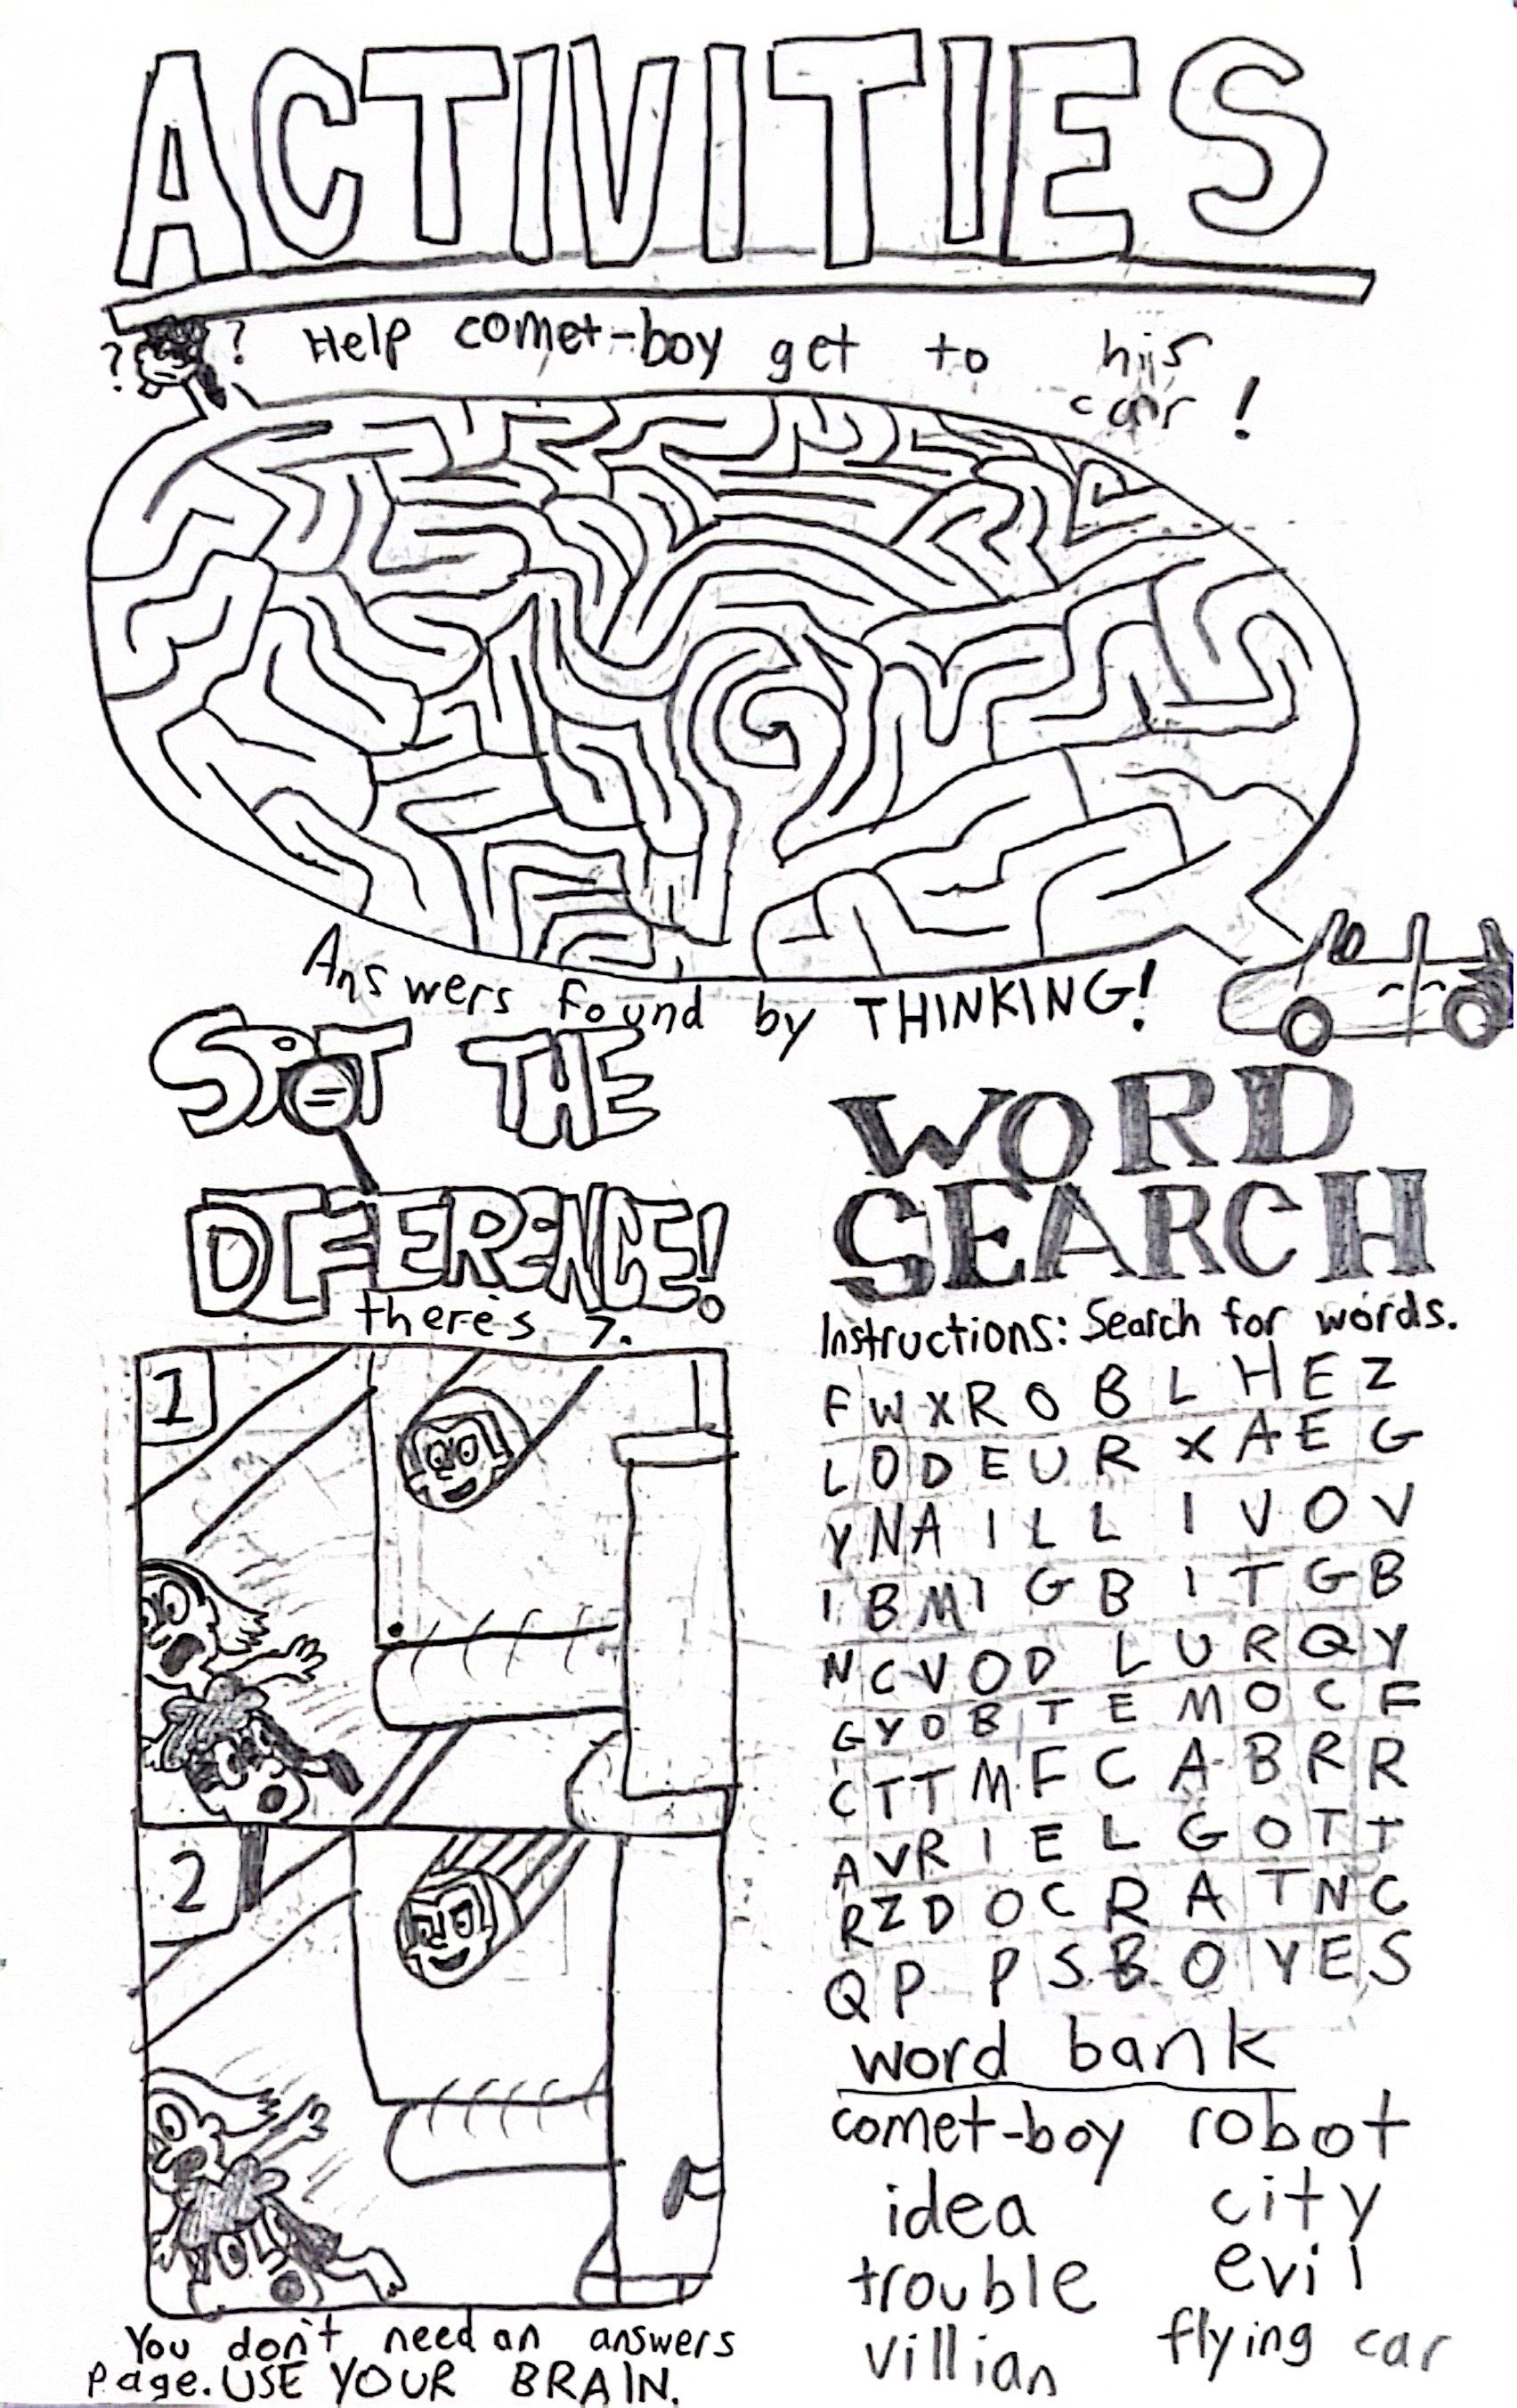 ACTIVITIES
? ? Help comet-boy get to his
car!
Answers found by THINKING!
SPOT THE
DIFERENCE!
there's 7.
1
2
You don't need an answers
page. USE YOUR BRAIN.
WORD
SEARCH
Instructions: Search for words.
F W X R O B L H E Z
L O D E U R X A E G
Y N A I L L I V O V
I B M I G B I T G B
N C V O D L U R Q Y
G Y O B T E M O C F
C T T M F C A B R R
A V R I E L G O T T
R Z D O C R A T N C
Q P P S B O Y E S
word bank
comet-boy robot
idea city
trouble evil
villian flying car